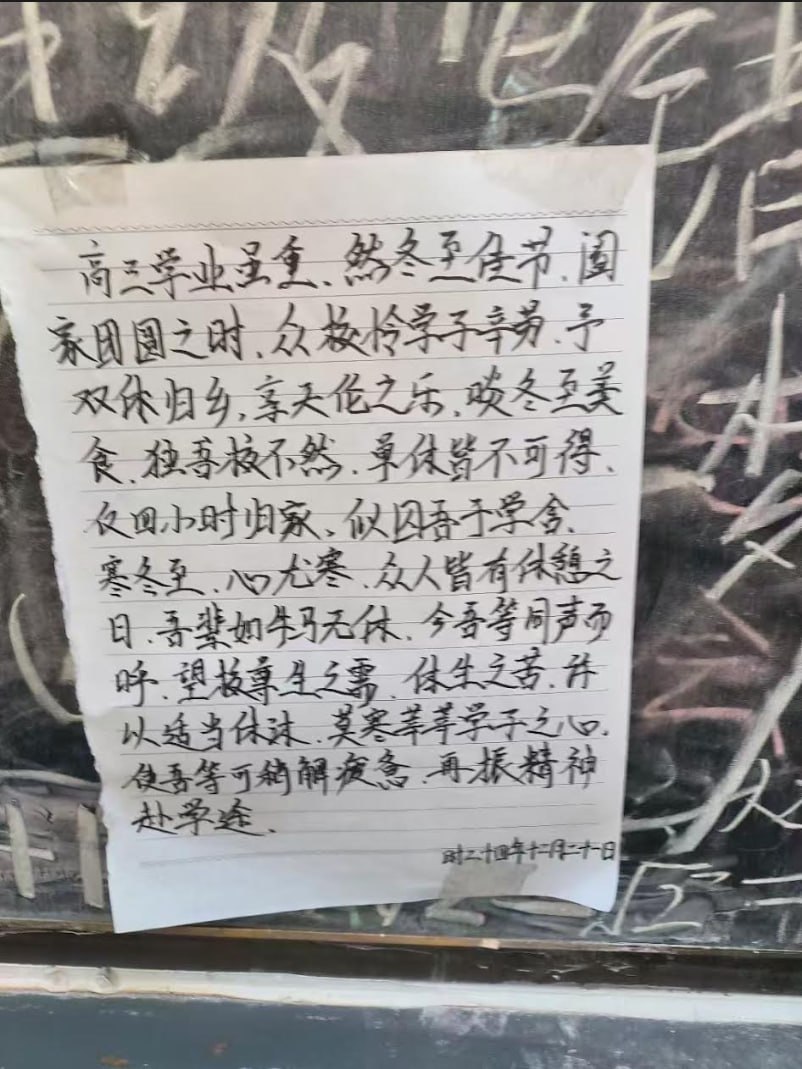 高三学业虽重、然冬至佳节、阖
家团圆之时、众校怜学子辛劳、予
双休归乡，享天伦之乐、啖冬至美
食、独吾校不然、单休皆不可得、
仅四小时归家、似囚吾于学舍、
寒冬至、心尤寒、众人皆有休憩之
日、吾辈如牛马无休、今吾等同声而
呼、望校尊生之需、体生之苦、许
以适当休沐、莫寒莘莘学子之心、
使吾等可稍解疲惫、再振精神
赴学途、
时二十四年十二月二十一日